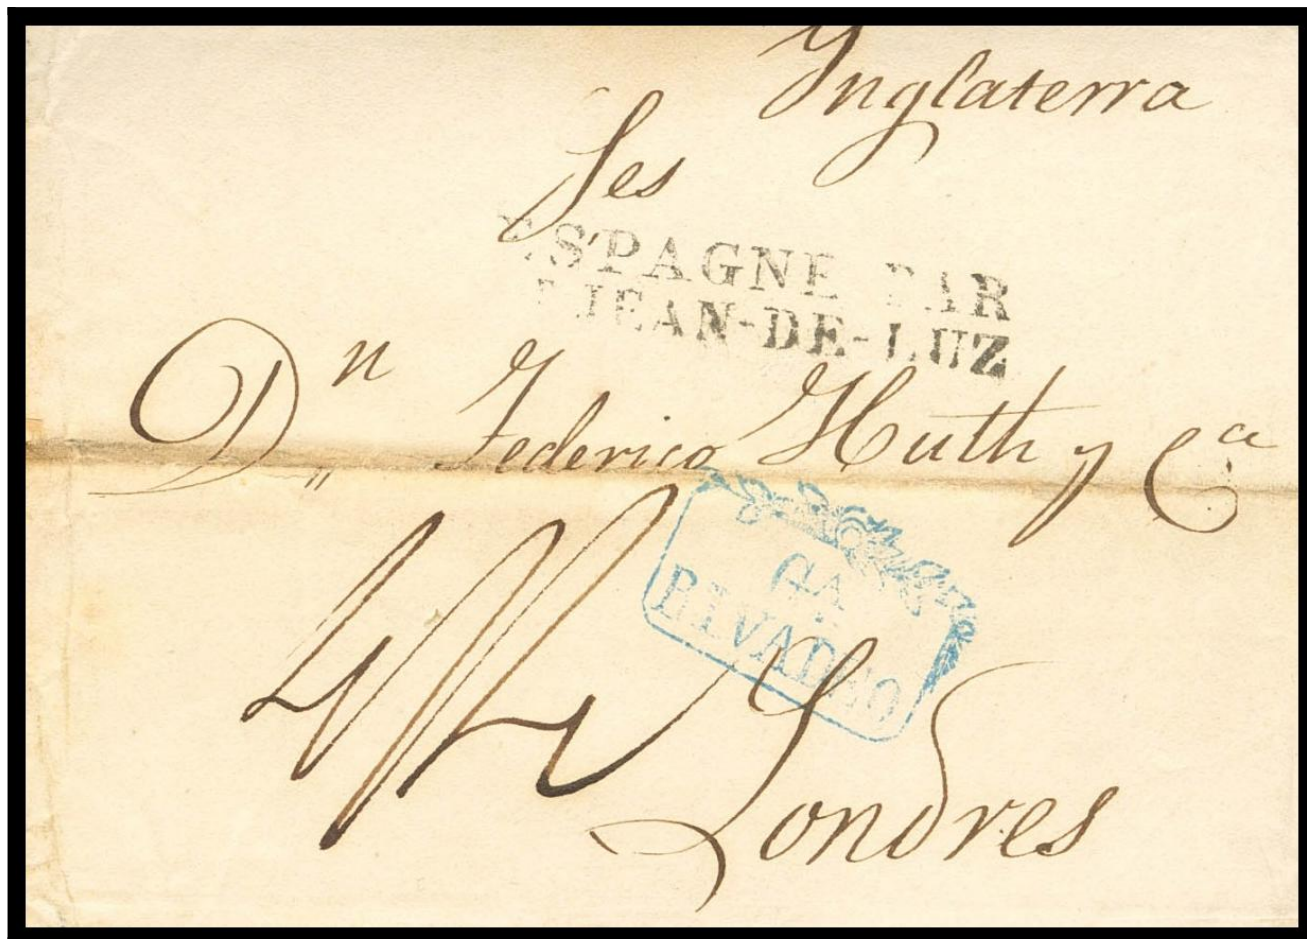 Inglaterra
Ses
ESPAGNE PAR
JEAN-DE-LUZ
Dn Federico Huth y Ca
GA
RIVADEO
Londres